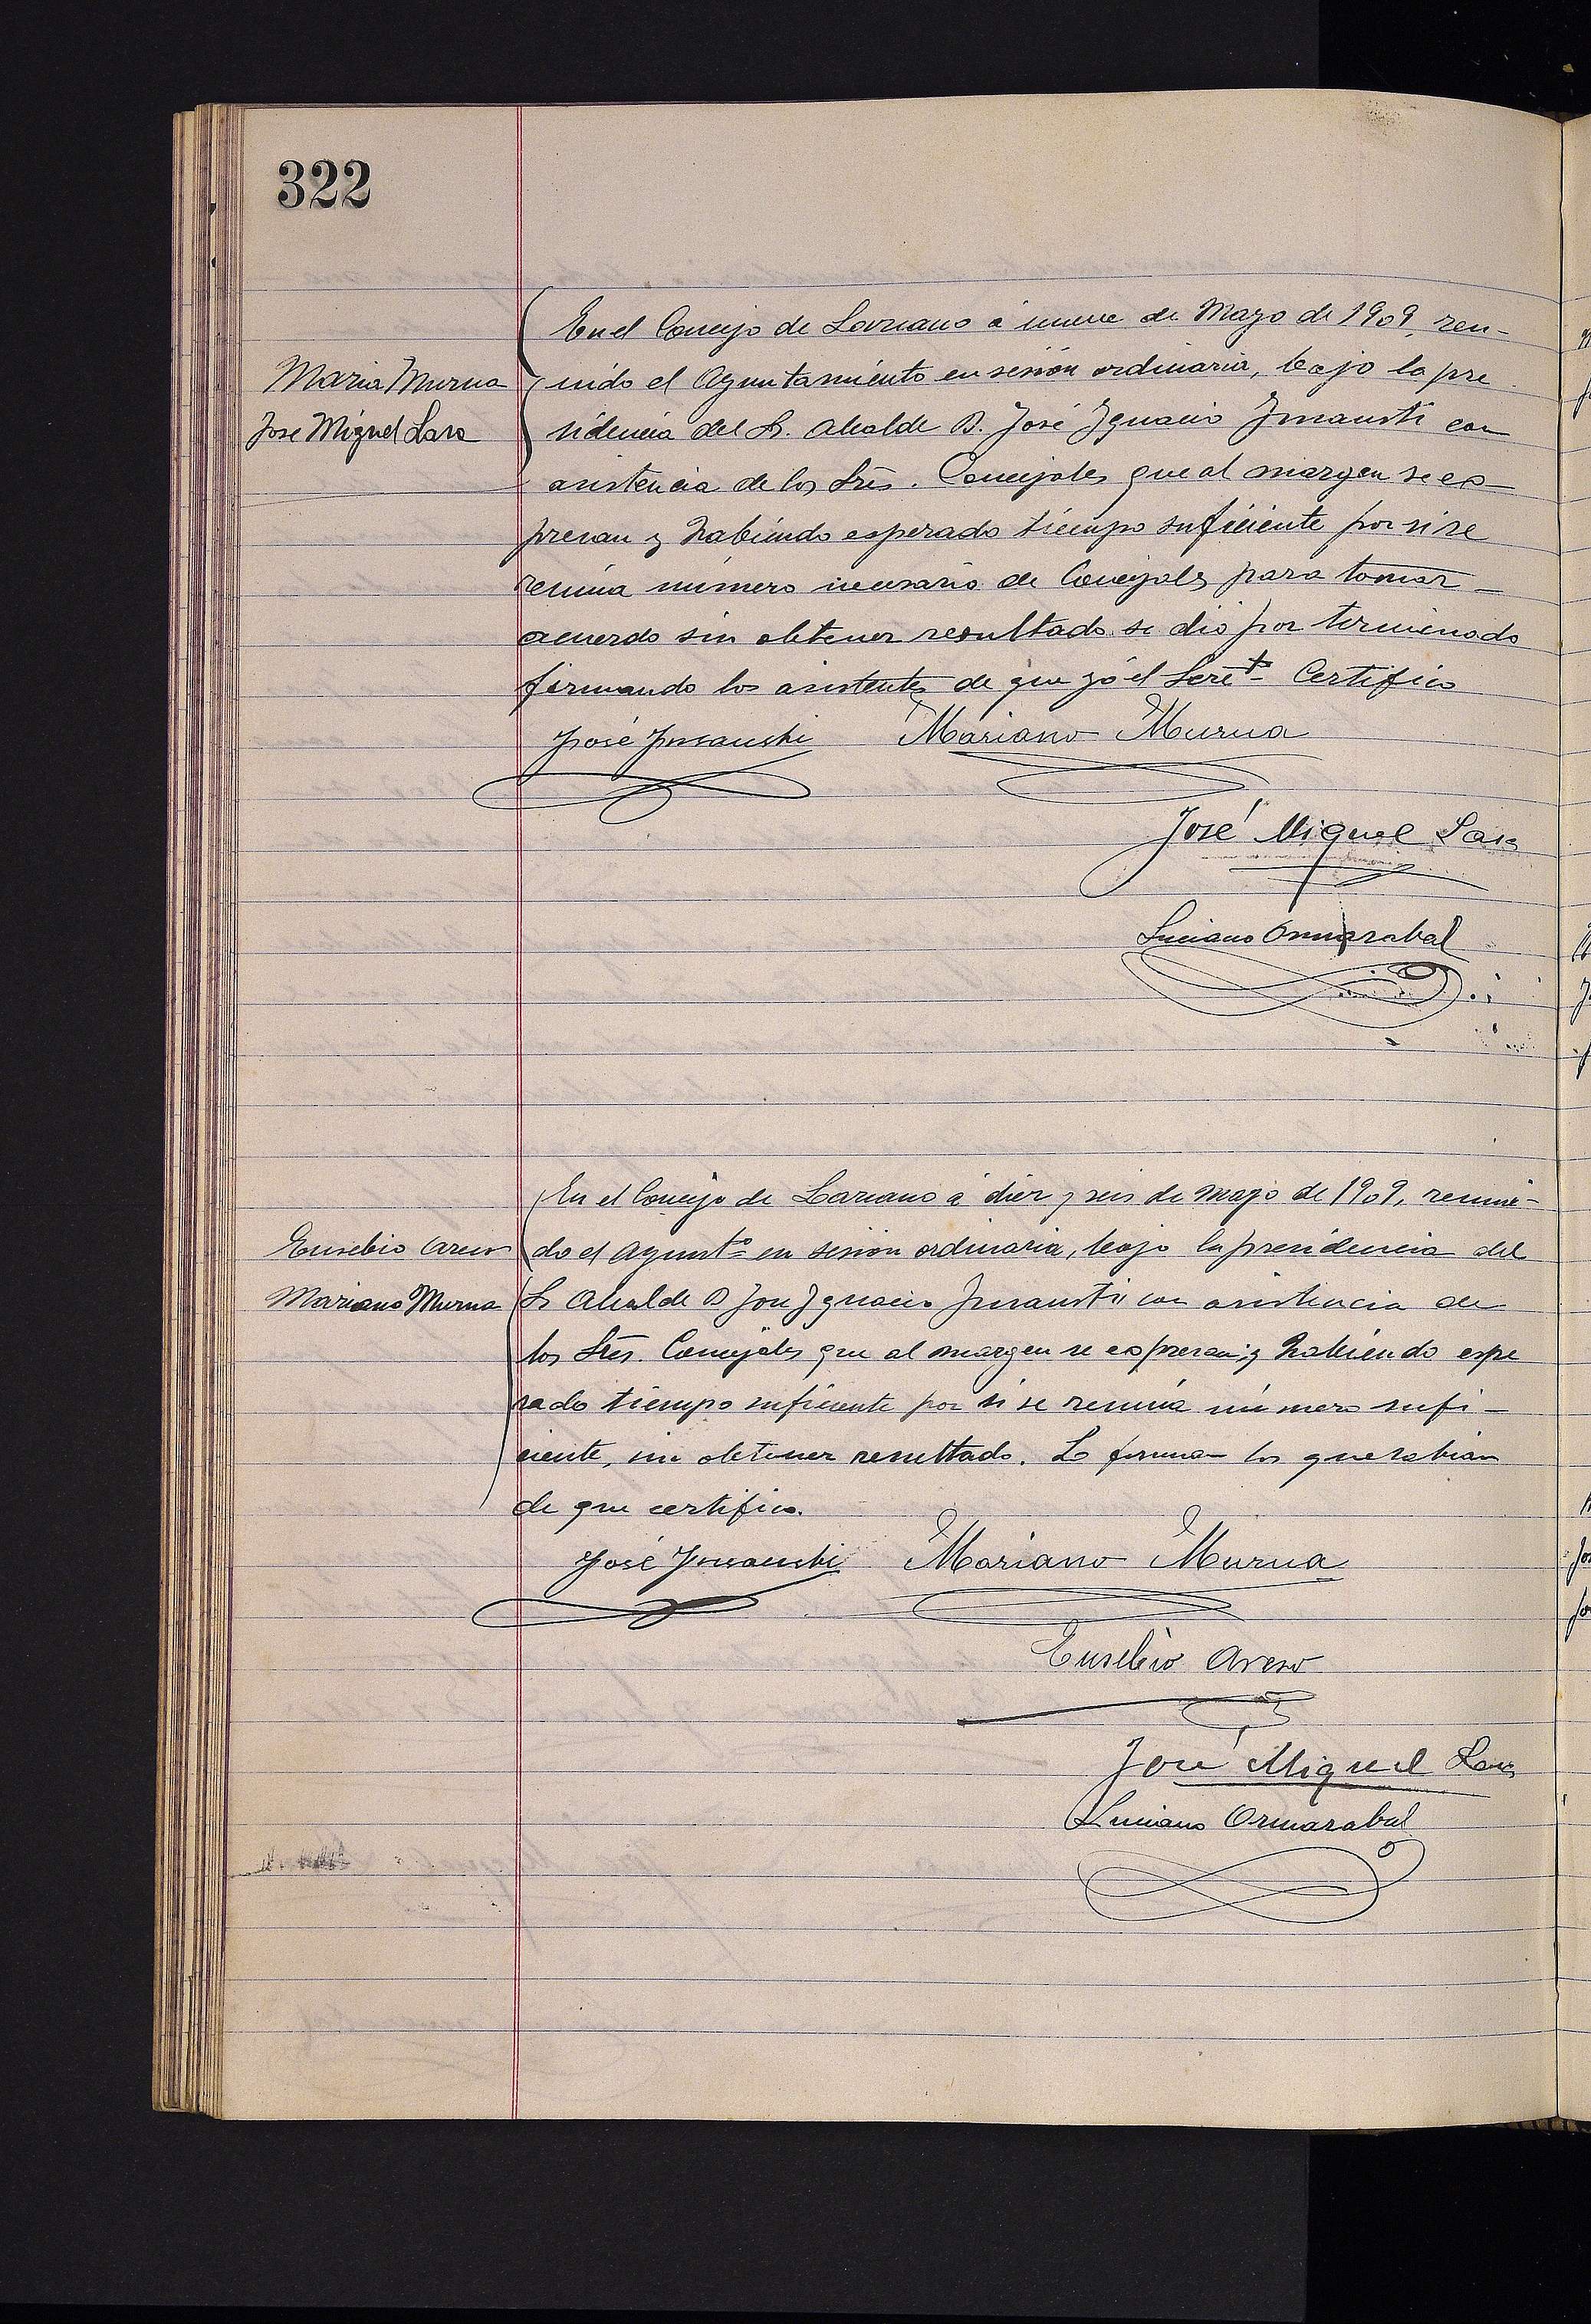 322
Maria Murua
Jose Miguel Lasa
En el Concejo de Lazcano á nueve de Mayo de 1909, reu-
nido el Ayuntamiento en sesión ordinaria, bajo la pre
sidencia del Sr. Alcalde D. José Ygnacio Ynsausti con
asistencia de los Srēs. Concejales que al margen se es-
presan y habiendo esperado tiempo suficiente por si se
reunia número necesario de Concejales para tomar
acuerdo sin obtener resultado se dió por terminado
firmando los asistentes de que yó el Secretº Certifico
José Ynsausti Mariano Murua
José Miguel Lasa
Luciano Ormazabal
Eusebio Areso
Mariano Murua
En el Concejo de Lazcano á diez y seis de Mayo de 1909, reuni-
do el Ayuntº en sesión ordinaria, bajo la presidencia del
Sr Alcalde D José Ygnacio Ynsausti con asistencia de
los Srēs. Concejales que al margen se espresan; y habiendo espe
rado tiempo suficiente por si se reunia número sufi-
ciente, sin obtener resultado. Lo firman los que sabian
de que certifico.
José Ynsausti Mariano Murua
Eusebio Areso
José Miguel Lasa
Luciano Ormazabal